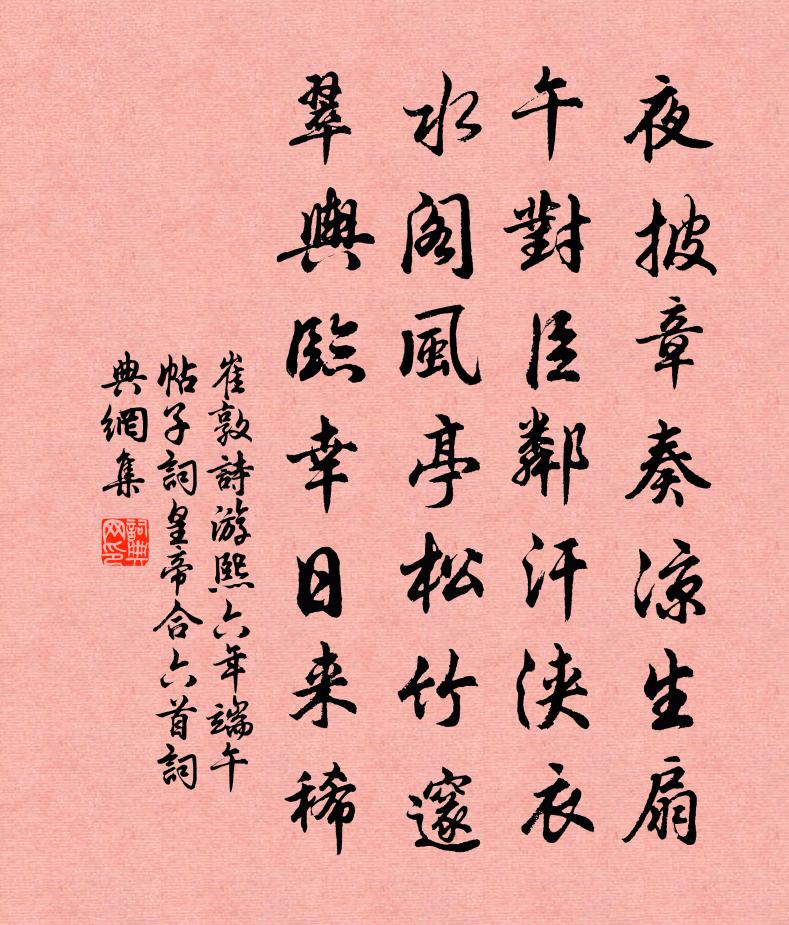 夜披章奏凉生扇
午對臣鄰汗浹衣
水閣風亭松竹邃
翠輿臨幸日来稀
崔敦詩游熙六年端午
帖子詞皇帝合六首詞
典網集
詞典網印